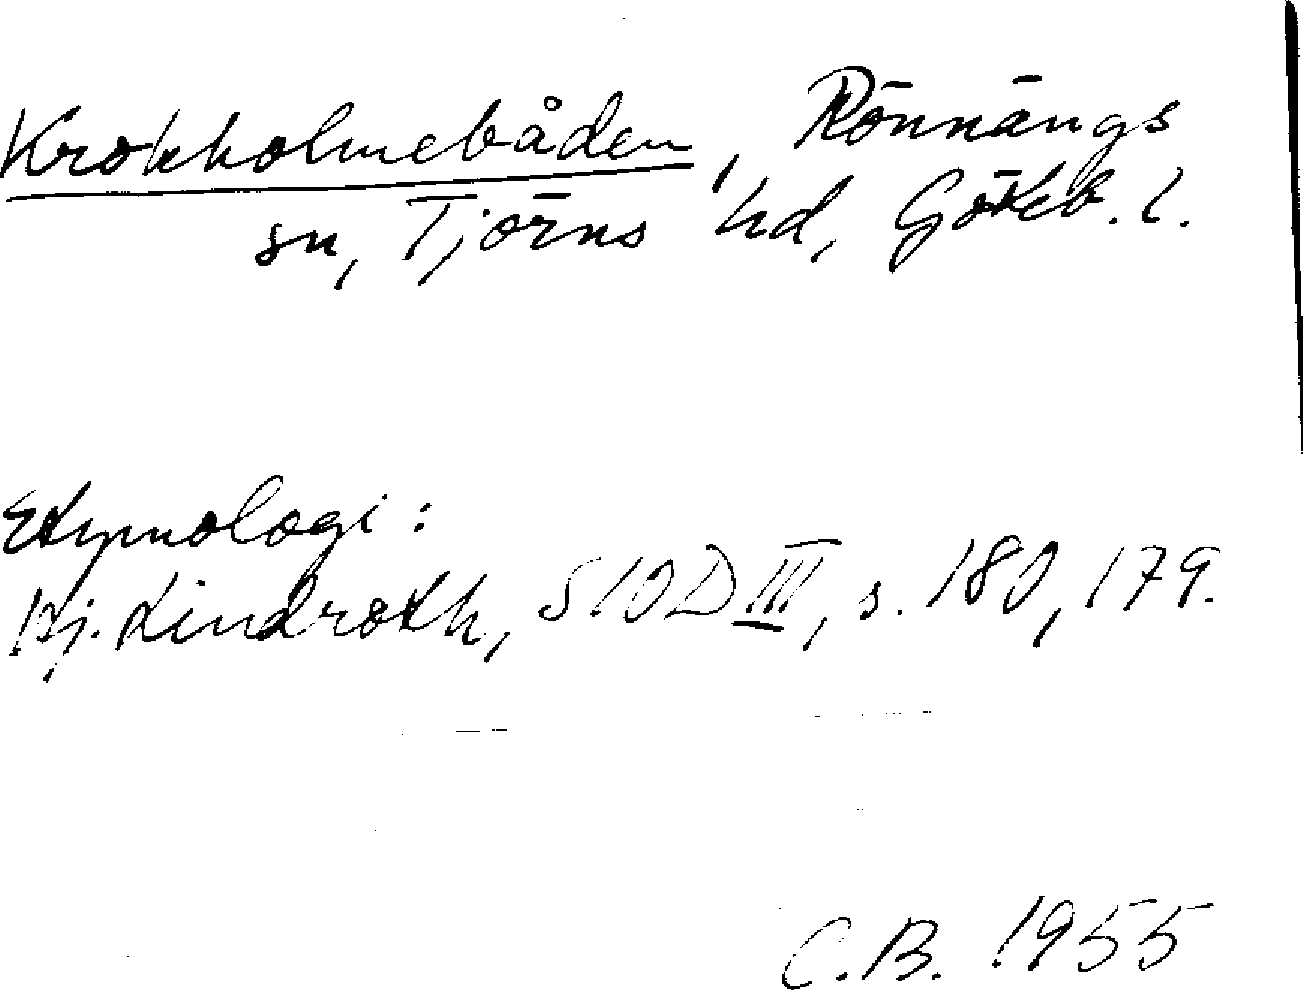 Krokholmebåden, Rönnängs
sn, Tjörns hd, Göteb. l.
Etymologi:
Hj. Lindroth, SIOD III, s. 180, 179.
C.B. 1955